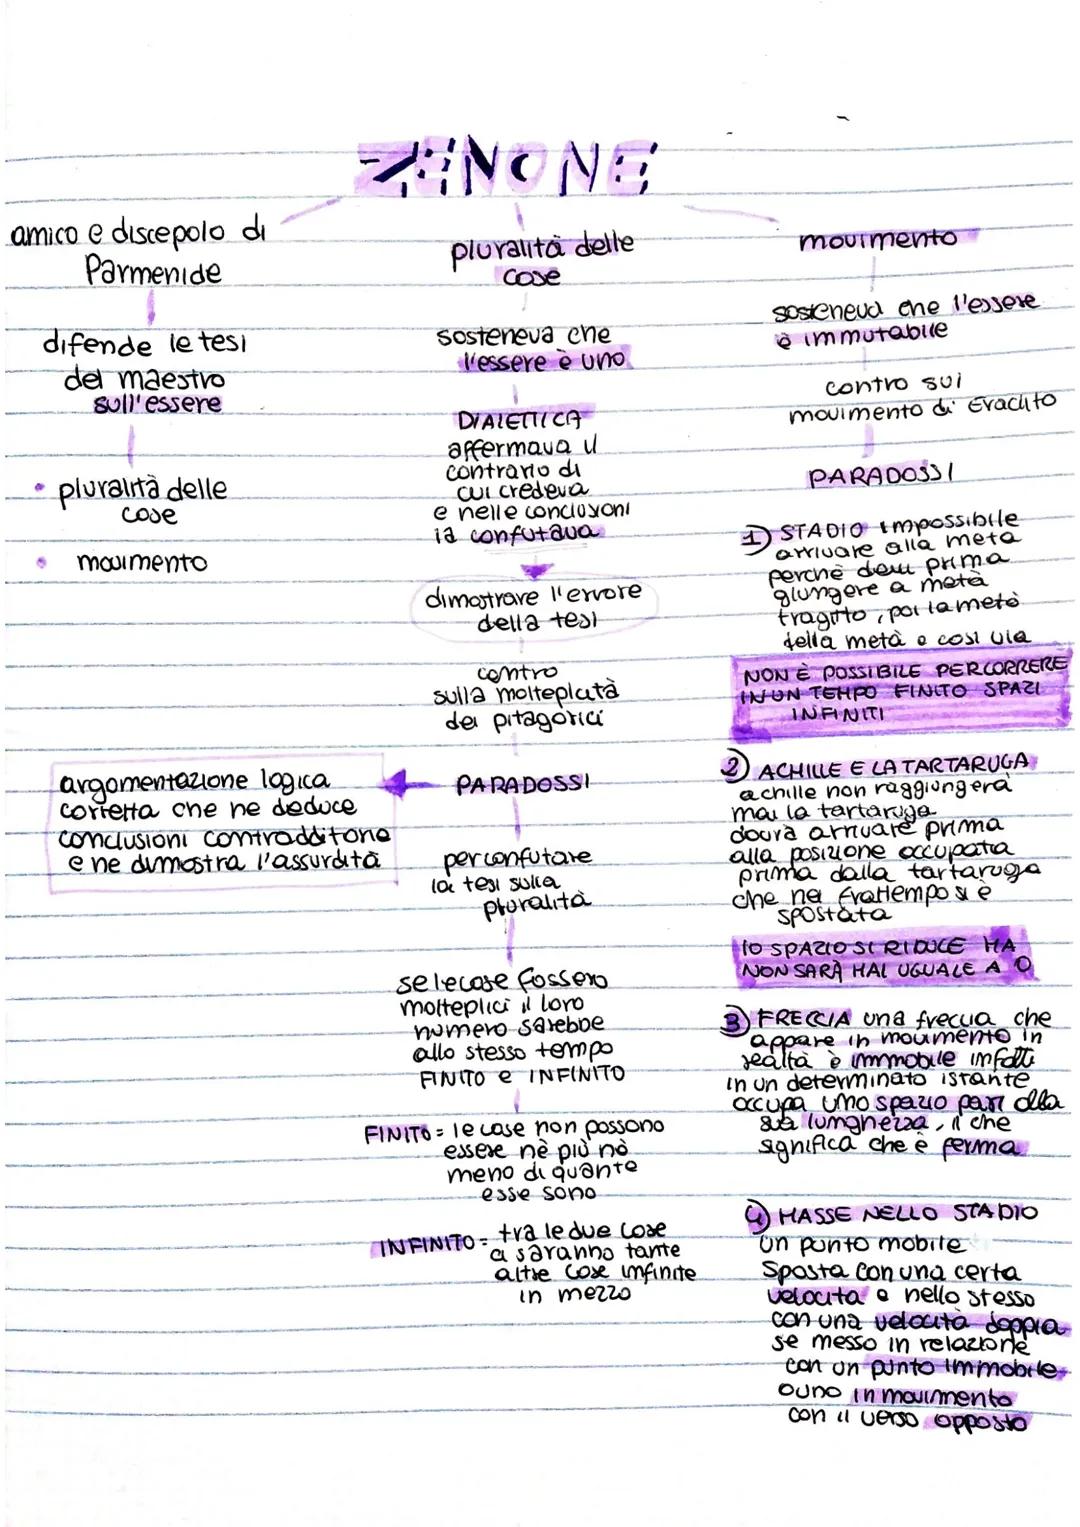 ZENONE
amico e discepolo di
Parmenide
difende le tesi
del maestro
sull'essere
• pluralità delle
cose
• movimento
pluralità delle
cose
sosteneva che
l'essere è uno
DIALETTICA
affermava il
contrario di
cui credeva
e nelle conclusioni
la confutava
dimostrare l'errore
della tesi
contro
sulla molteplicità
dei pitagorici
PARADOSSI
argomentazione logica
corretta che ne deduce
conclusioni contradditorie
e ne dimostra l'assurdità
per confutare
la tesi sulla
pluralità
se le cose fossero
molteplici il loro
numero sarebbe
allo stesso tempo
FINITO e INFINITO
FINITO = le cose non possono
essere nè più nè
meno di quante
esse sono
INFINITO = tra le due cose
ci saranno tante
altre cose infinite
in mezzo
movimento
sosteneva che l'essere
è immutabile
contro sul
movimento di Eraclito
PARADOSSI
1) STADIO impossibile
arrivare alla meta
perchè devi prima
giungere a metà
tragitto, poi la metà
della metà e così via
NON È POSSIBILE PERCORRERE
IN UN TEMPO FINITO SPAZI
INFINITI
2) ACHILLE E LA TARTARUGA
achille non raggiungerà
mai la tartaruga
dovrà arrivare prima
alla posizione occupata
prima dalla tartaruga
che nel frattempo si è
spostata
lo SPAZIO SI RIDUCE MA
NON SARÀ MAI UGUALE A 0
3) FRECCIA una freccia che
appare in movimento in
realtà è immobile infatti
in un determinato istante
occupa uno spazio pari alla
sua lunghezza, il che
significa che è ferma
4) MASSE NELLO STADIO
un punto mobile
sposta con una certa
velocita e nello stesso
con una velocità doppia
se messo in relazione
con un punto immobile
o uno in movimento
con il verso opposto